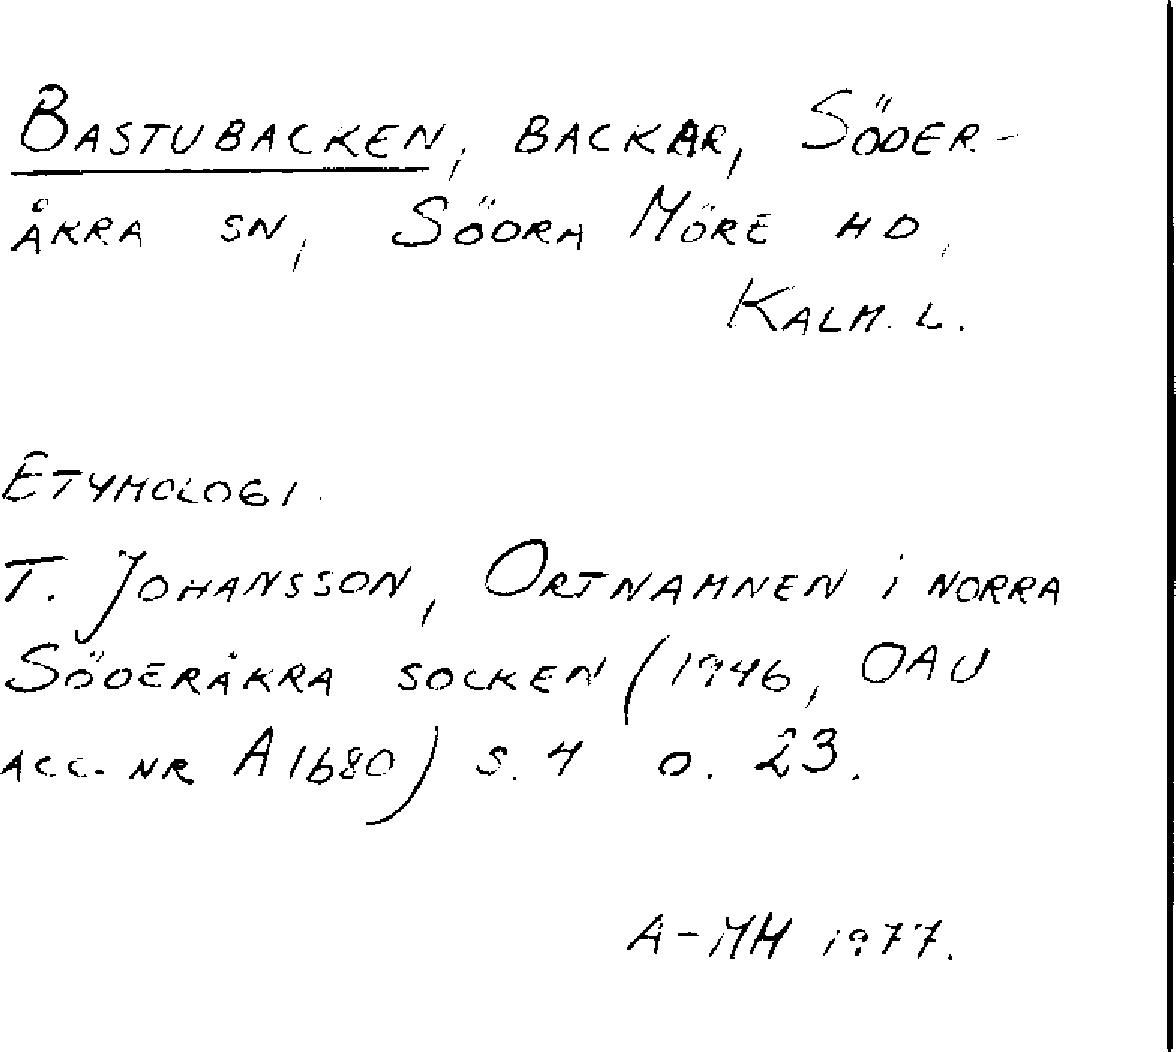 BASTUBACKEN, BACKAR, SÖDER-
ÅKRA SN, SÖDRA MÖRE HD,
KALM. L.
ETYMOLOGI.
T. JOHANSSON, ORTNAMNEN i NORRA
SÖDERÅKRA SOCKEN (1946, OAU
ACC. NR A1680) S. 4 O. 23.
A-MH 1977.